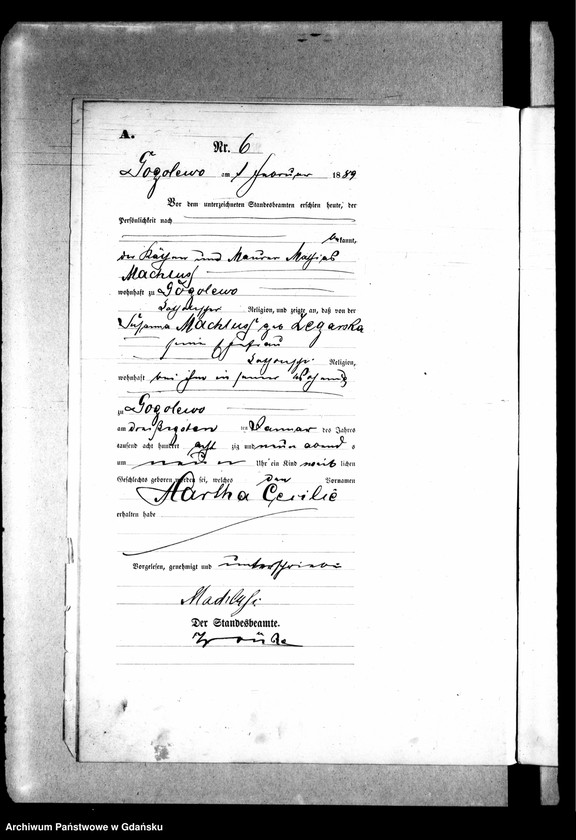 A.
Nr. 6
Gogolewo am 1 Februar 1889
Vor dem unterzeichneten Standesbeamten erschien heute, der
Persönlichkeit nach
bekannt,
der Käthner und Maurer Mathias
Machlus
wohnhaft zu Gogolewo
katholischer Religion, und zeigte an, daß von der
Susanna Machlus geb Zegarska
seine Ehefrau
katholischer Religion,
wohnhaft bei ihm in seiner
zu Gogolewo
am dreißigsten Januar des Jahres
tausend acht hundert acht zig und neun abend s
um neun Uhr ein Kind weib lichen
Geschlechts geboren worden sei, welches den Vornamen
Martha Cecilie
erhalten habe
Vorgelesen, genehmigt und unterschrieben
Der Standesbeamte.